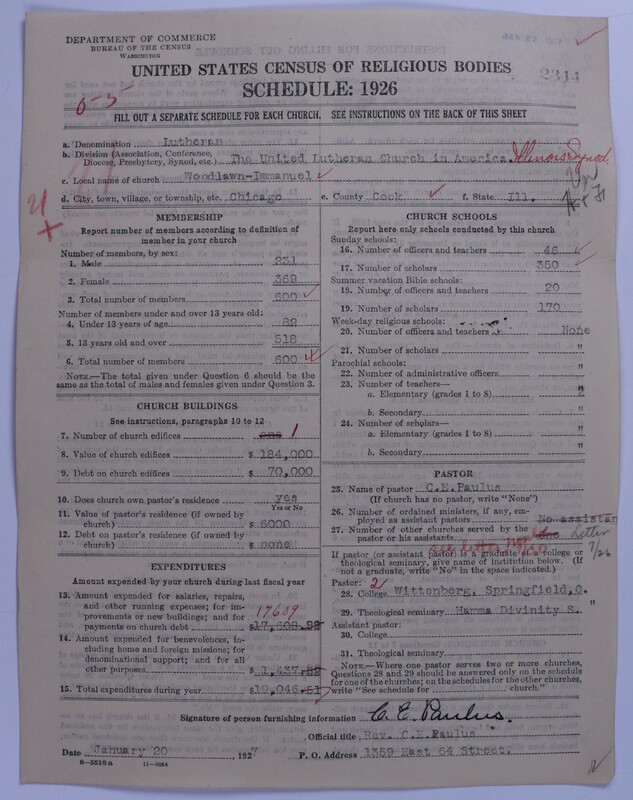 DEPARTMENT OF COMMERCE
BUREAU OF THE CENSUS
WASHINGTON
UNITED STATES CENSUS OF RELIGIOUS BODIES
SCHEDULE: 1926
2344
6-5
FILL OUT A SEPARATE SCHEDULE FOR EACH CHURCH. SEE INSTRUCTIONS ON THE BACK OF THIS SHEET
a. Denomination Lutheran
b. Division (Association, Conference, Diocese, Presbytery, Synod, etc.) The United Lutheran Church in America. Illinois Synod.
c. Local name of church Woodlawn-Immanuel
d. City, town, village, or township, etc. Chicago e. County Cook f. State Ill.
MEMBERSHIP
Report number of members according to definition of
member in your church
Number of members, by sex:
1. Male 231
2. Female 369
3. Total number of members 600
Number of members under and over 13 years old:
4. Under 13 years of age 82
5. 13 years old and over 518
6. Total number of members 600
NOTE.—The total given under Question 6 should be
same as the total of males and females given under Question 3.
CHURCH BUILDINGS
See instructions, paragraphs 10 to 12
7. Number of church edifices one 1
8. Value of church edifices $ 184,000
9. Debt on church edifices $ 70,000
10. Does church own pastor's residence yes
Yes or No
11. Value of pastor's residence (if owned by
church) $ 6000
12. Debt on pastor's residence (if owned by
church) $ none
EXPENDITURES
Amount expended by your church during last fiscal year
13. Amount expended for salaries, repairs,
and other running expenses; for im-
provements or new buildings; and for
payments on church debt 17609 $17,608.99
14. Amount expended for benevolences,
including home and foreign missions; for
denominational support; and for all
other purposes $ 1,437.52
15. Total expenditures during year $19,046.51
CHURCH SCHOOLS
Report here only schools conducted by this church
Sunday schools:
16. Number of officers and teachers 46
17. Number of scholars 350
Summer vacation Bible schools:
18. Number of officers and teachers 20
19. Number of scholars 170
Week-day religious schools:
20. Number of officers and teachers None
21. Number of scholars "
Parochial schools:
22. Number of administrative officers "
23. Number of teachers—
a. Elementary (grades 1 to 8) "
b. Secondary "
24. Number of scholars—
a. Elementary (grades 1 to 8) "
b. Secondary "
PASTOR
25. Name of pastor C.E.Paulus
(If church has no pastor, write "None")
26. Number of ordained ministers, if any, em-
ployed as assistant pastors No assistan
27. Number of other churches served by the
pastor or his assistants letter
If pastor (or assistant pastor) is a graduate of a college or
theological seminary, give name of institution below. (If
not a graduate, write "No" in the space indicated.)
Pastor: 2
28. College Wittenberg, Springfield, O.
29. Theological seminary Hamma Divinity S. "
Assistant pastor:
30. College
31. Theological seminary
NOTE.—Where one pastor serves two or more churches,
Questions 28 and 29 should be answered only on the schedule
for one of the churches; on the schedules for the other churches,
write "See schedule for church."
Signature of person furnishing information C. E. Paulus.
Official title Rev. C.E.Paulus
Date January 20 1927 P. O. Address 1359 East 64 Street.
8-5518a 11-9264